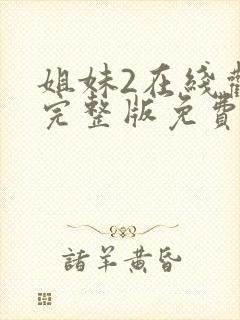 姐妹2在綫觀
完整版免費
諸羊黄昏